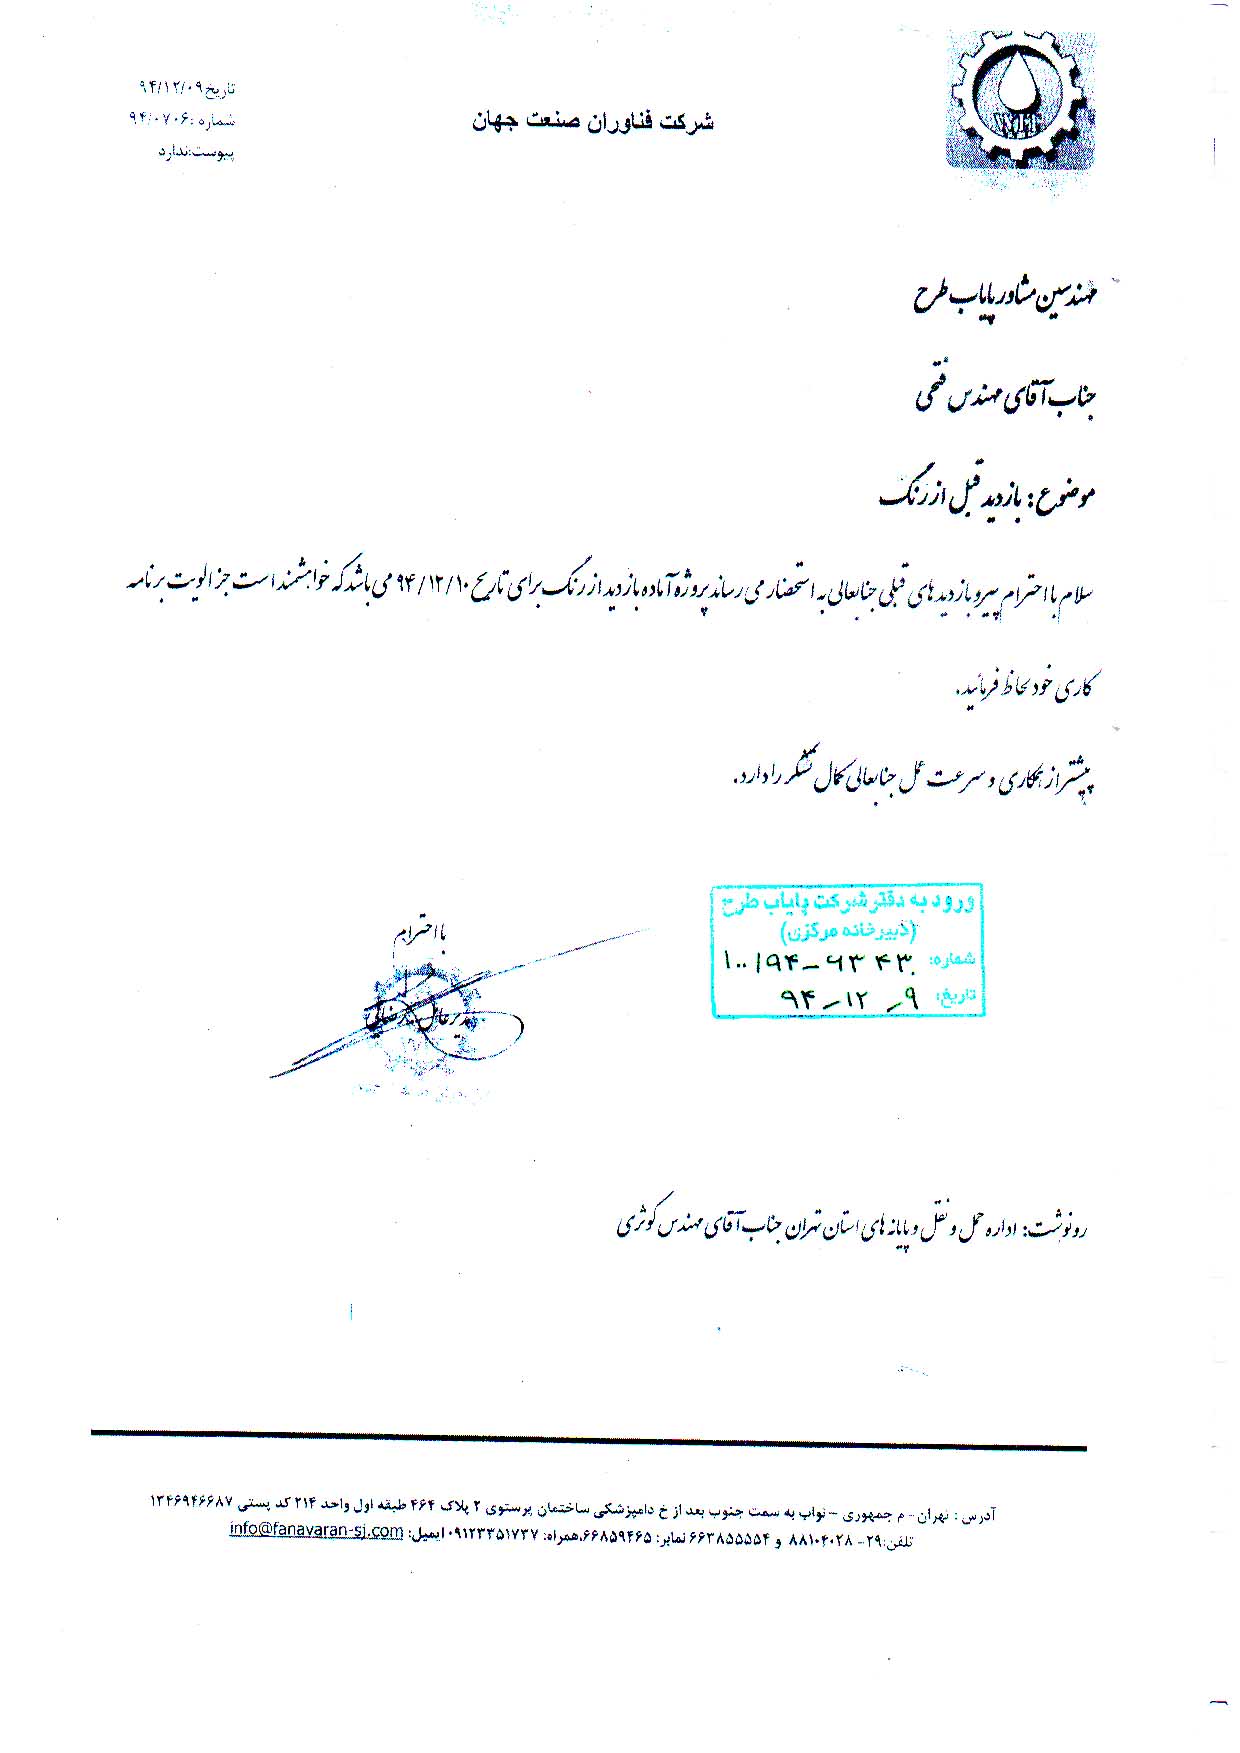 تاریخ۹۴/۱۲/۰۹
شماره :۹۴/۰۷۰۶
پیوست:ندارد
شرکت فناوران صنعت جهان
مهندسین مشاور پایاب طرح
جناب آقای مهندس فتحی
موضوع : بازدید قبل از رنگ
سلام با احترام پیرو بازدید های قبلی جنابعالی به استحضار می رساند پروژه آماده بازدید از رنگ برای تاریخ ۹۴/۱۲/۱۰ می باشد که خواهشمند است جز الویت برنامه
کاری خود لحاظ فرمائید.
پیشتر از همکاری و سرعت عمل جنابعالی کمال تشکر را دارد.
با احترام
مدیرعامل
ورود به دفتر شرکت پایاب طرح
(دبیرخانه مرکزی)
شماره: ۱۰۰/۹۴-۹۳۴۳
تاریخ: ۹-۱۲-۹۴
رونوشت: اداره حمل و نقل و پایانه های استان تهران جناب آقای مهندس کوثری
آدرس : تهران - م جمهوری – نواب به سمت جنوب بعد از خ دامپزشکی ساختمان پرستوی ۲ پلاک ۴۶۴ طبقه اول واحد ۲۱۴ کد پستی ۱۳۴۶۹۴۶۶۸۷
تلفن:۲۹- ۸۸۱۰۴۰۲۸ و ۶۶۳۸۵۵۵۴ نمابر: ۶۶۸۵۹۴۶۵،همراه: ۰۹۱۲۳۳۵۱۷۳۷ ایمیل: info@fanavaran-sj.com